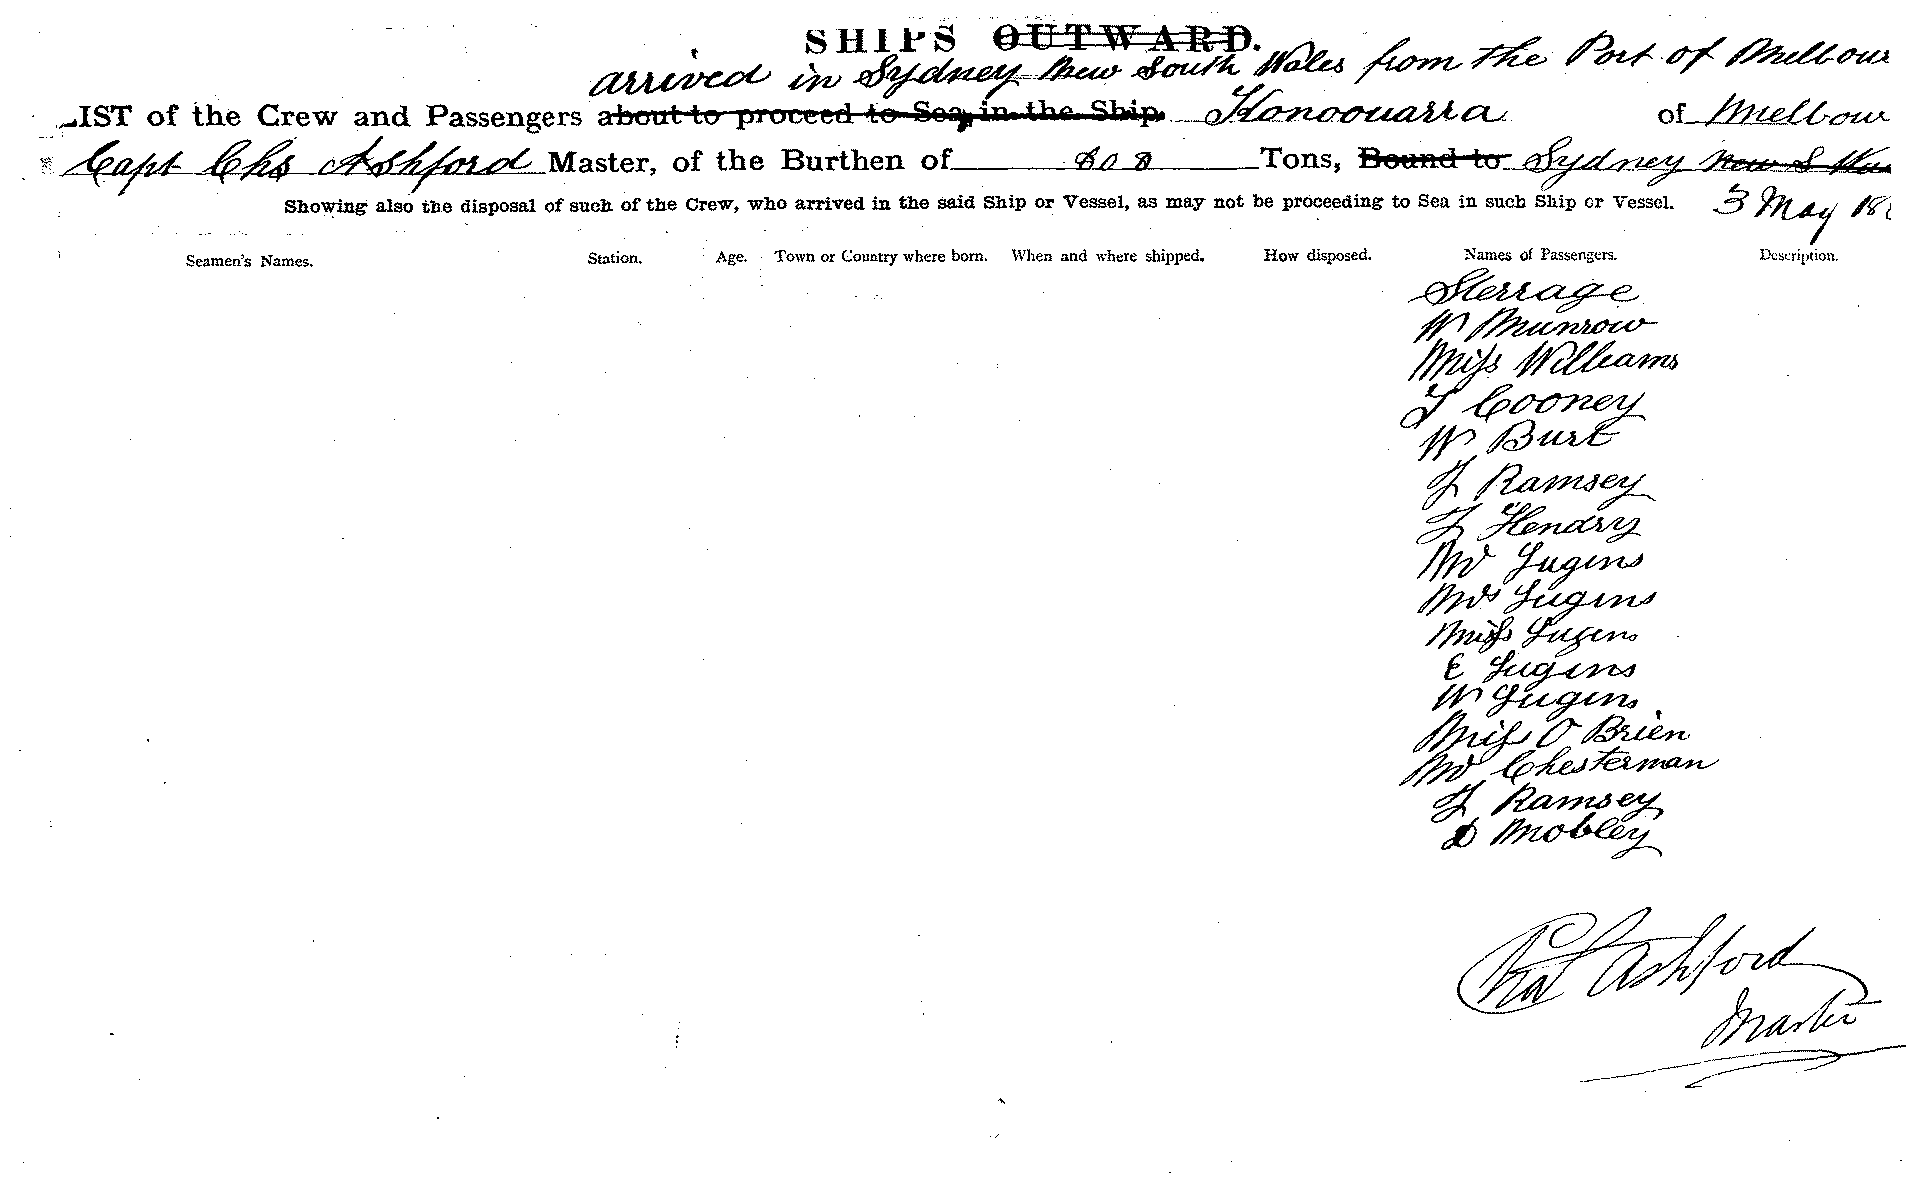 SHIPS OUTWARD.
arrived in Sydney New South Wales from the Port of Melbour
LIST of the Crew and Passengers about to proceed to Sea, in the Ship, Konoowarra of Melbour
Capt Chs Ashford Master, of the Burthen of Tons, Bound to Sydney New S Wa
Showing also the disposal of such of the Crew, who arrived in the said Ship or Vessel, as may not be proceeding to Sea in such Ship or Vessel. 3 May 18
Seamen's Names. Station. Age. Town or Country where born. When and where shipped. How disposed. Names of Passengers. Description.
Sterrage
W Munrow
Miss Williams
T Cooney
W Burt
J Ramsey
Hendry
Mr Lugins
Mrs Lugins
Miss Lugins
E Lugins
W Lugins
Miss O Brien
Mr Chesterman
J Ramsey
D Mobley
Chas Ashford
Master